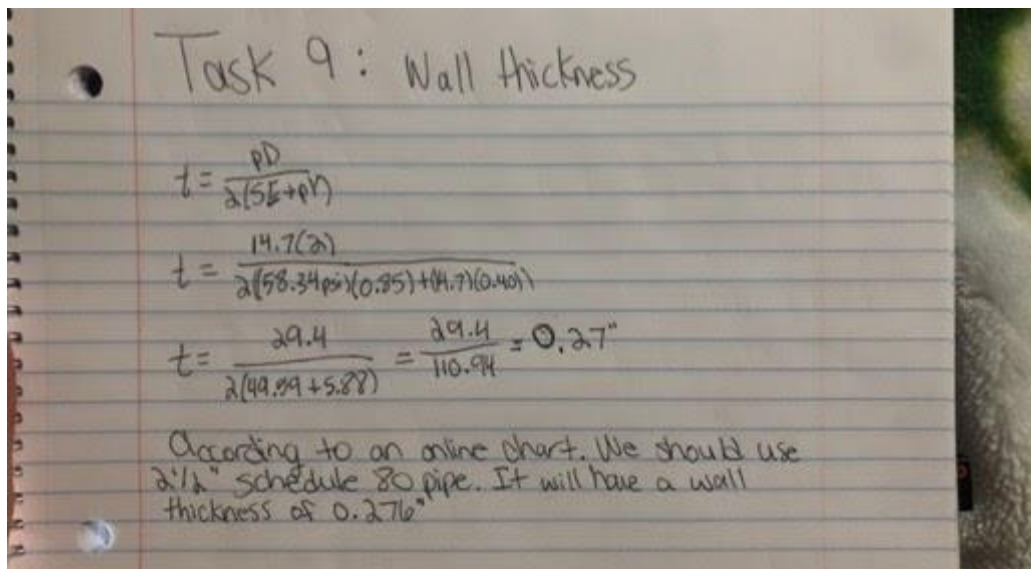 Task 9: Wall thickness
t = pD / 2(SE+pY)
t = 14.7(2) / 2((58.34psi)(0.85)+(14.7)(0.40))
t = 29.4 / 2(49.59+5.88) = 29.4 / 110.94 = 0.27"
According to an online chart. We should use
2 1/2" schedule 80 pipe. It will have a wall
thickness of 0.276"